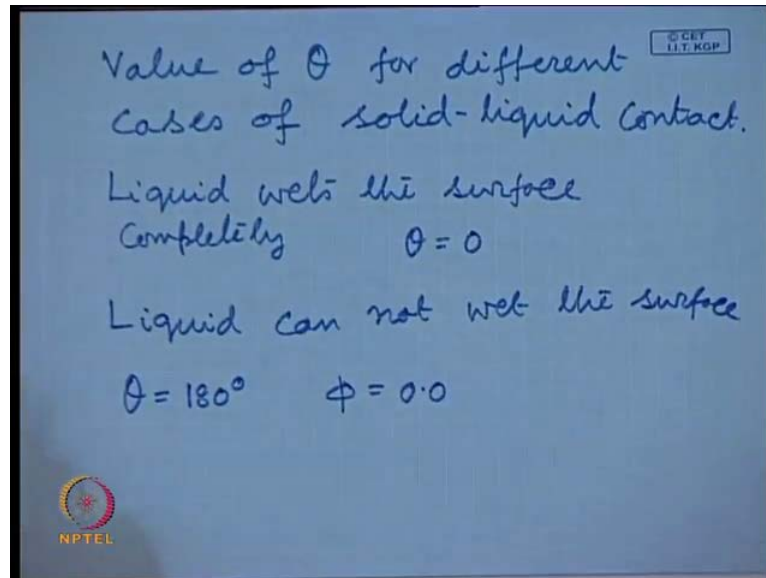 © CET
I.I.T. KGP
Value of θ for different
cases of solid-liquid contact.
Liquid wets the surface
completely θ = 0
Liquid can not wet the surface
θ = 180° φ = 0.0
NPTEL